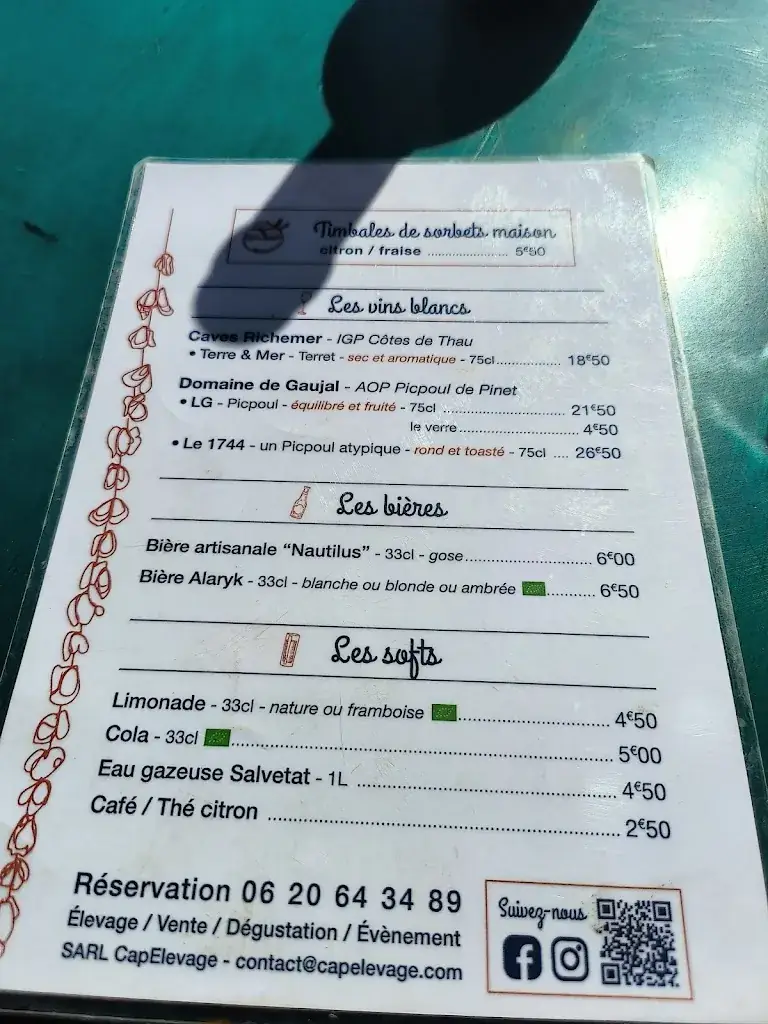 Timbales de sorbets maison
citron / fraise ........................ 5€50
Les vins blancs
Caves Richemer - IGP Côtes de Thau
• Terre & Mer - Terret - sec et aromatique - 75cl................ 18€50
Domaine de Gaujal - AOP Picpoul de Pinet
• LG - Picpoul - équilibré et fruité - 75cl .............................. 21€50
le verre............................. 4€50
• Le 1744 - un Picpoul atypique - rond et toasté - 75cl .... 26€50
Les bières
Bière artisanale “Nautilus” - 33cl - gose............................ 6€00
Bière Alaryk - 33cl - blanche ou blonde ou ambrée ........... 6€50
Les softs
Limonade - 33cl - nature ou framboise ................................ 4€50
Cola - 33cl ................................................................................ 5€00
Eau gazeuse Salvetat - 1L .................................................... 4€50
Café / Thé citron ...................................................................... 2€50
Réservation 06 20 64 34 89
Élevage / Vente / Dégustation / Évènement
SARL CapElevage - contact@capelevage.com
Suivez-nous